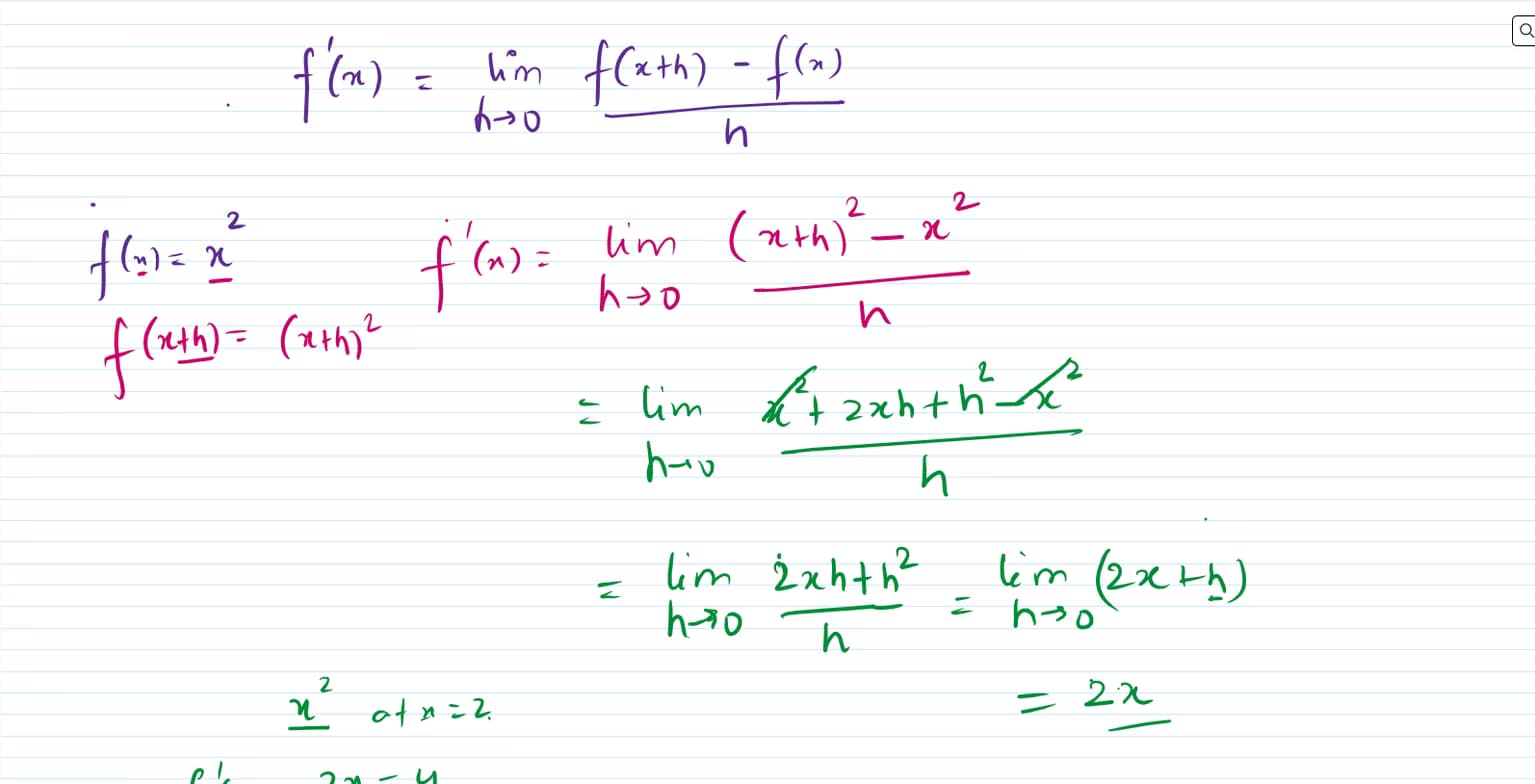 f'(x) = lim h→0 f(x+h) - f(x) / h
f(x) = x² f'(x) = lim h→0 (x+h)² - x² / h
f(x+h) = (x+h)²
= lim h→0 x² + 2xh + h² - x² / h
= lim h→0 2xh + h² / h = lim h→0 (2x + h)
= 2x
x² at x = 2.
2x = 4